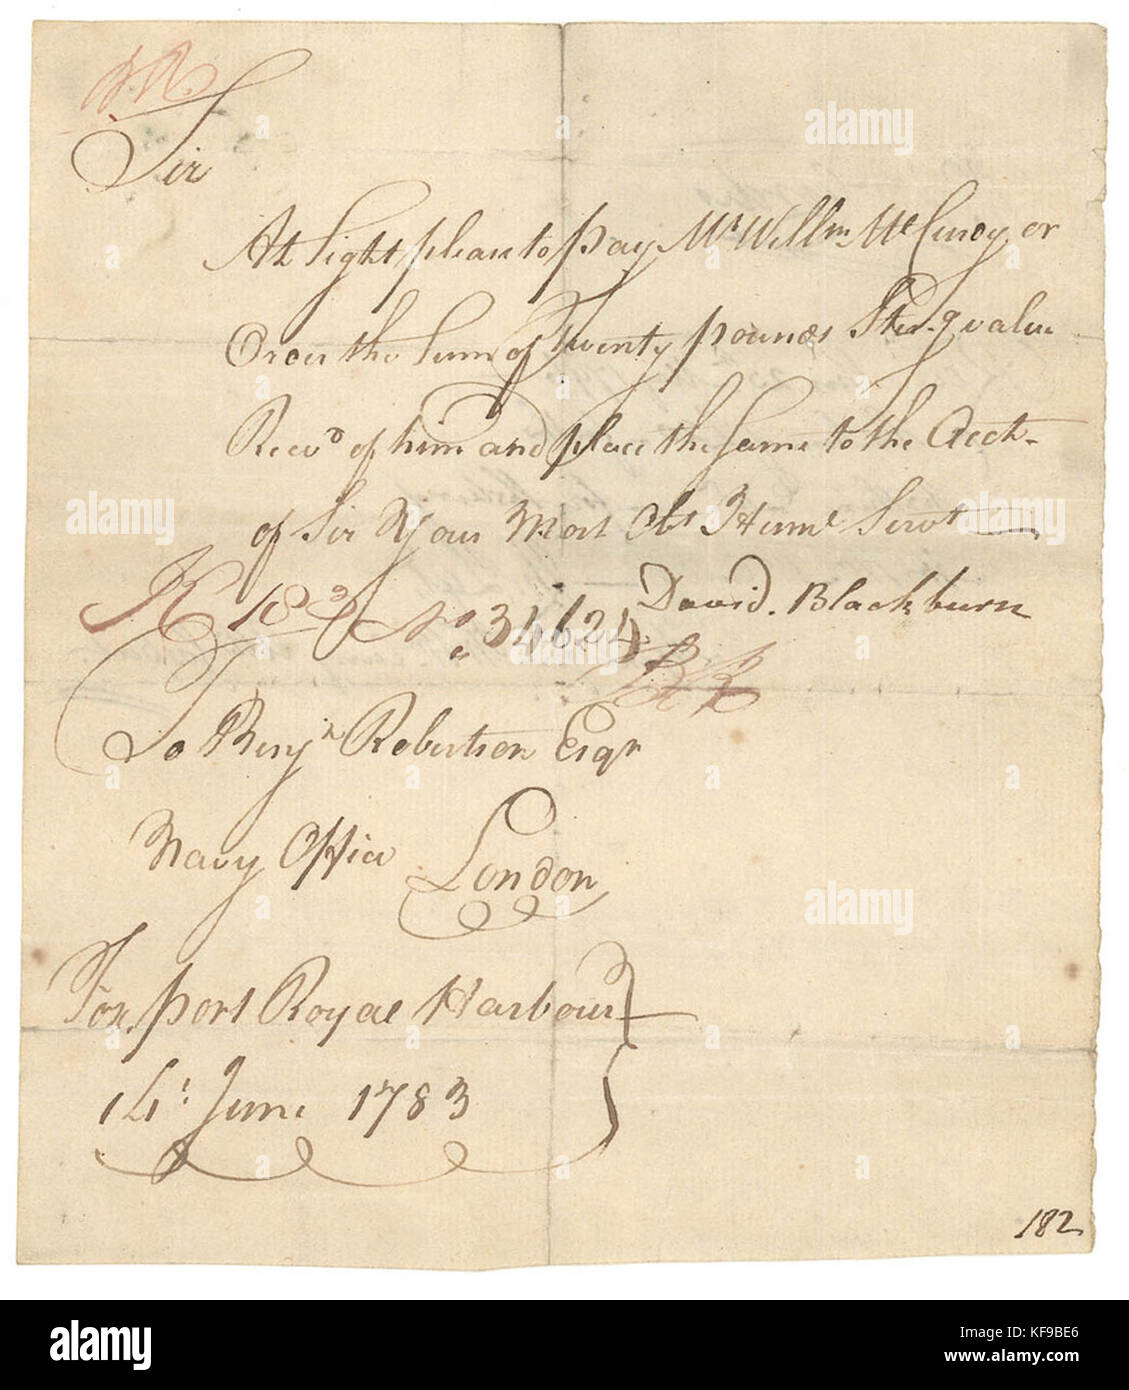 BR
Sir
At Sight please to pay Mr. Willm. McCunoy or
Order the Sum of Twenty pounds Ster.g value
Recvd of him and place the Same to the Acct.
of Sir Your Most Obt Hume Servt
David. Blackburn
No. 34624
BR
To Benjn Robertson Esqr
Navy Office London
Fox. port Royal Harbour
14: June 1783
182
alamy
Image ID: KF9BE6
www.alamy.com